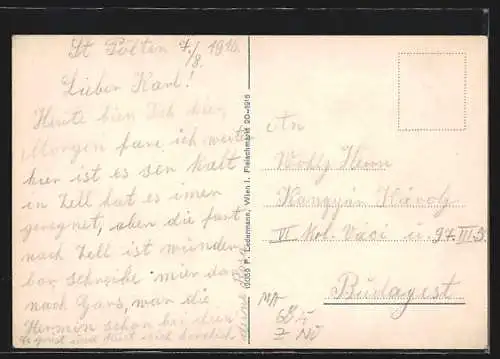 St Pölten 7./8. 1916.
Lieber Karl!
Heute bien Ich hier,
Morgen fare ich weiter
hier ist es sen Kalt
in Zell hat es imer
geregnet, aben die fart
nach Zell ist wunder
bar schreibe mier dan
nach Gars, wan die
Hermin schon bei
deine
10059 P. Ledermann, Wien I. Fleischmarkt 20-1916
An
Wohlg Herrn
Kangyán Károly
VI Krt. Váci u. 97. III 3.
Budapest